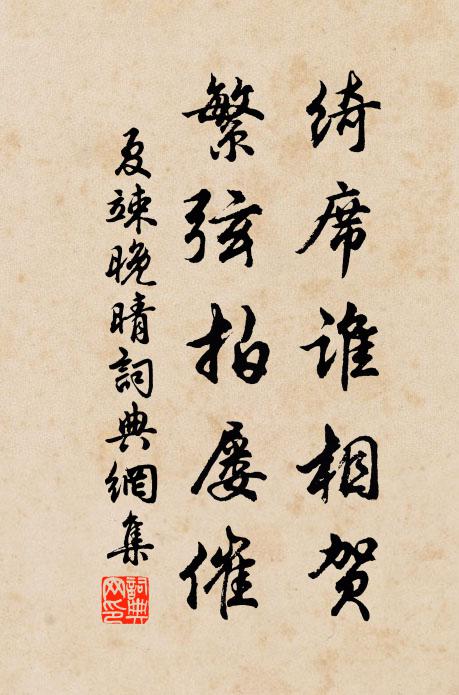 绮席谁相贺
繁弦拍屡催
夏竦晚晴詞典網集
詞典
网印